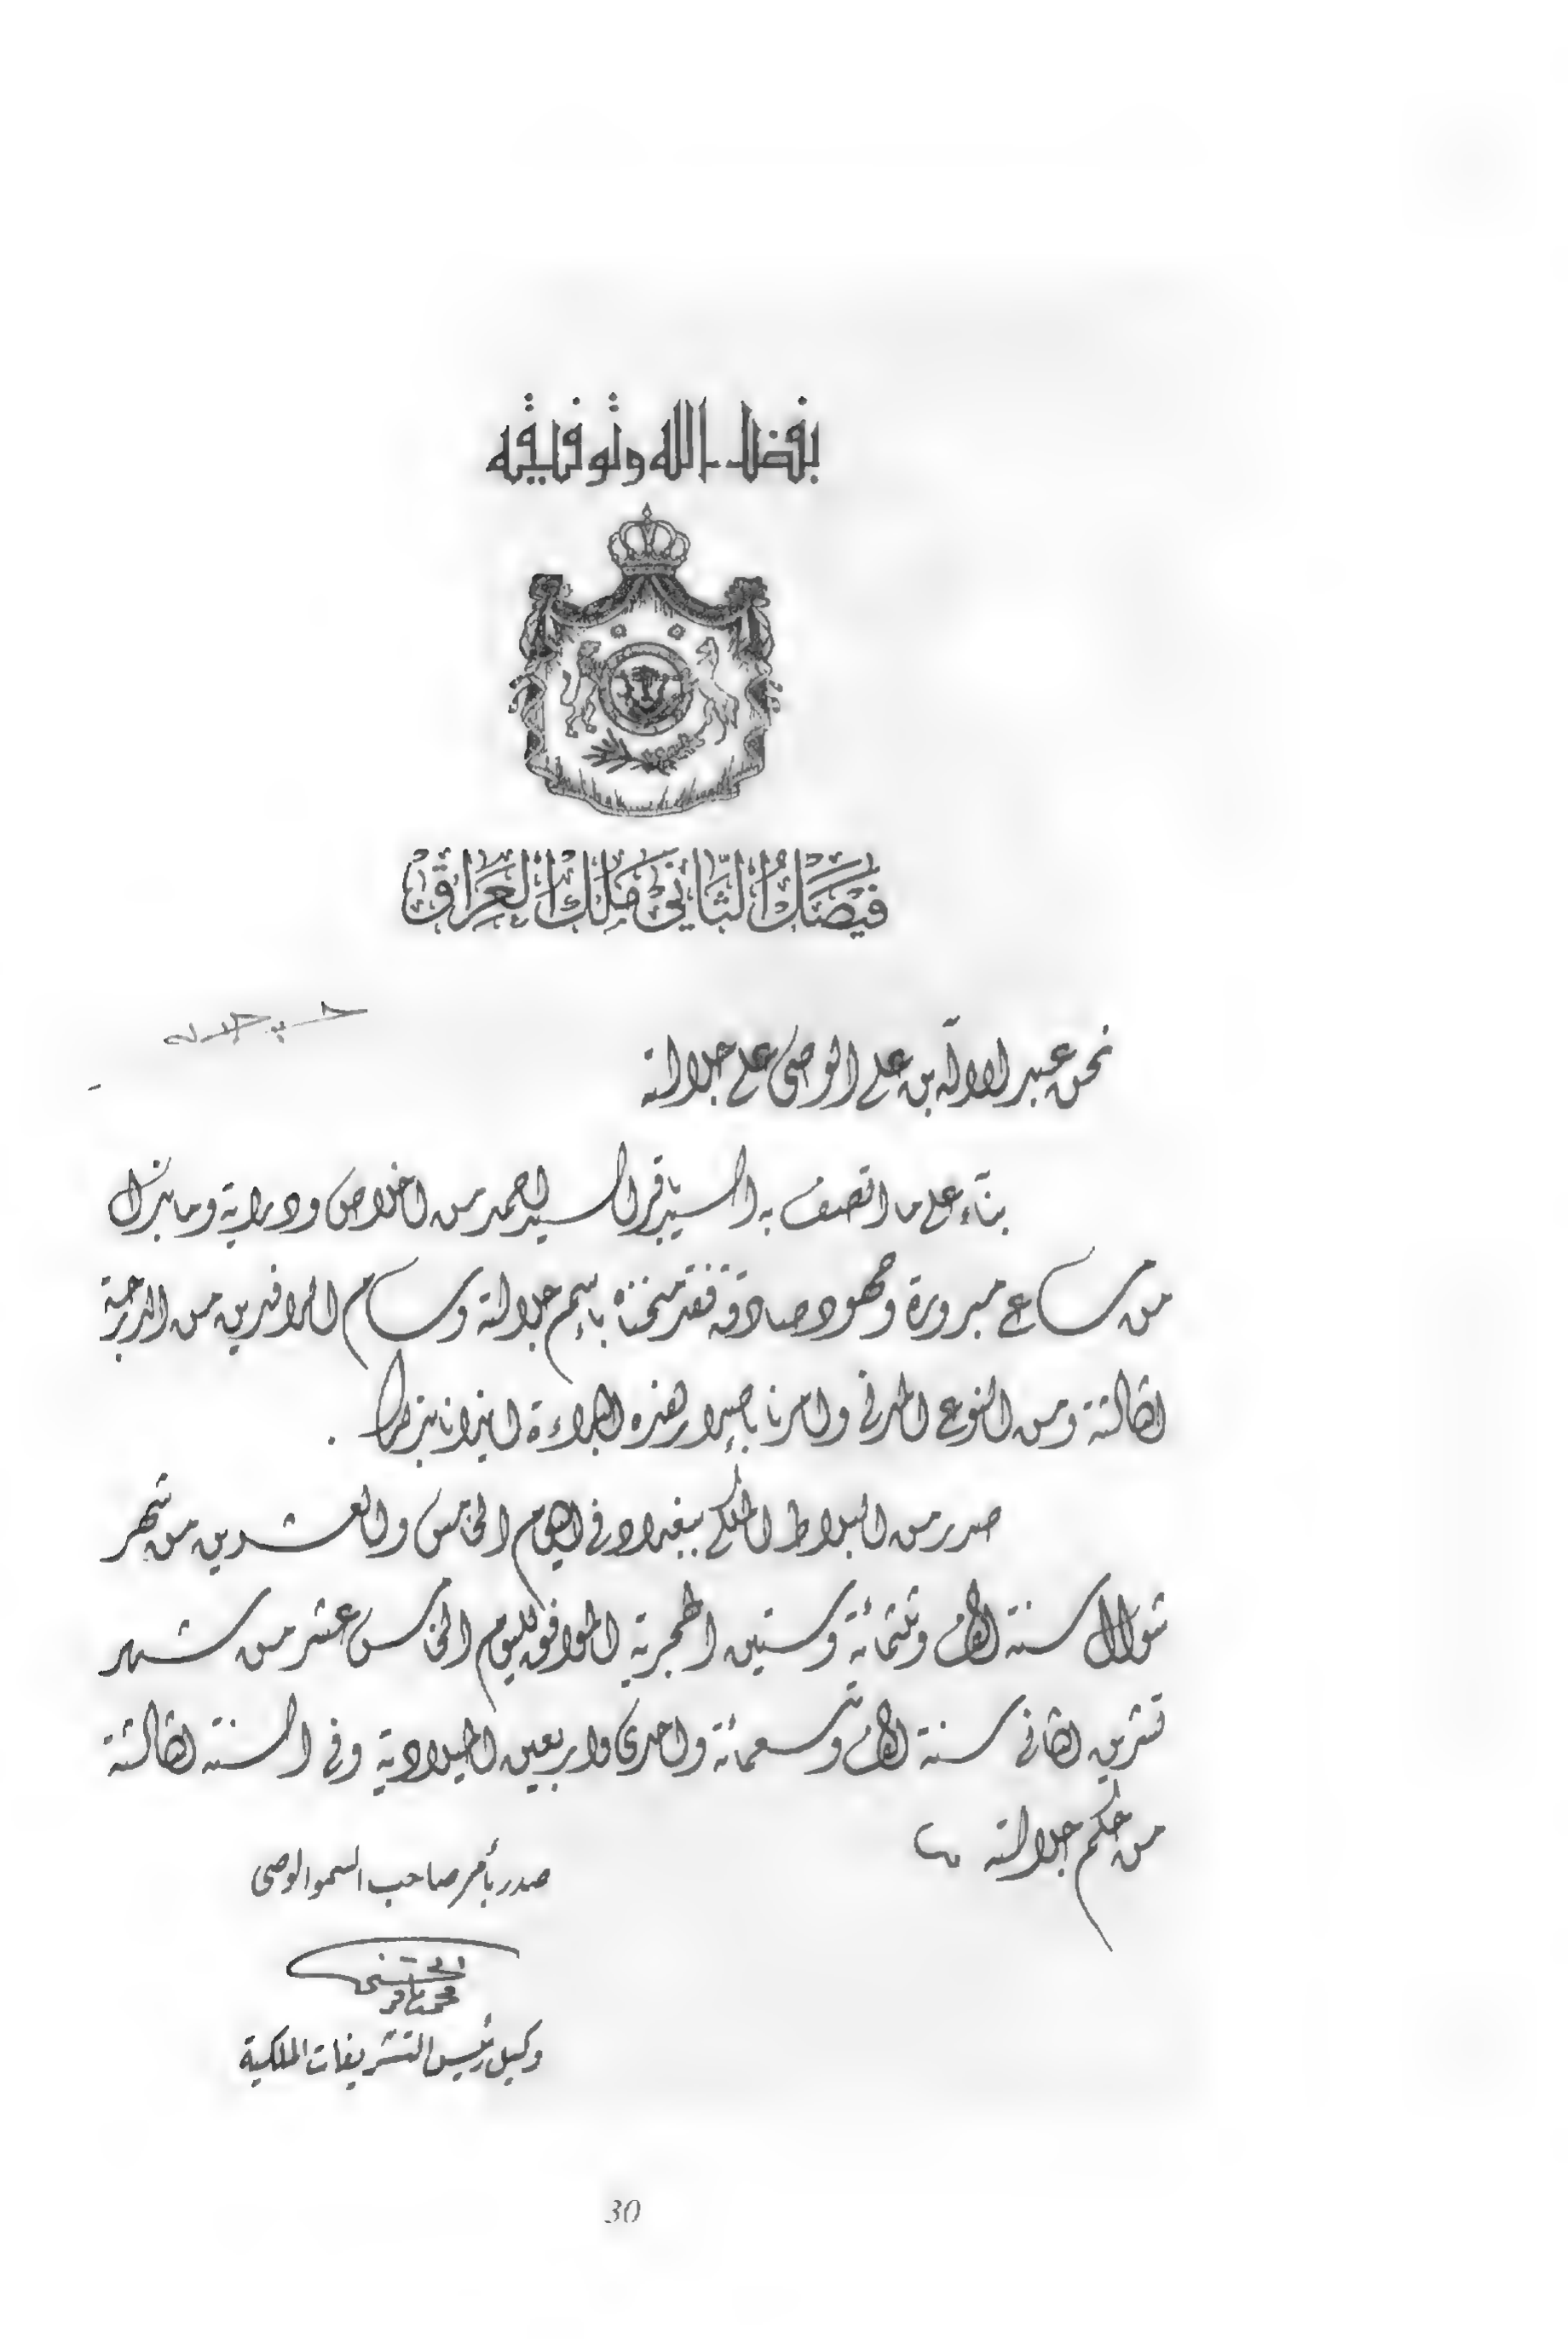 بفضل الله وتوفيقه
فيصل الثاني ملك العراق
نحن عبد الاله بن علي الوصي على جلالته
بناء على ما اتصف به السيد باقر السيد احمد من اخلاص ودراية وما بذل
من مساع مبرورة وجهود صادقة فقد منحناه باسم جلالته وسام الرافدين من الدرجة
الثالثة ومن النوع المدني وامرنا بإصدار هذه البراءة ايذانا بذلك .
صدر من البلاط الملكي ببغداد في اليوم الخامس والعشرين من شهر
شوال سنة الف وثلثمائة وستين الهجرية الموافق لليوم الخامس عشر من شهر
تشرين الثاني سنة الف وتسعمائة واحدى واربعين الميلادية وفي السنة الثالثة
من حكم جلالته
صدر بأمر صاحب السمو الوصي
محمد باقر
وكيل رئيس التشريفات الملكية
30